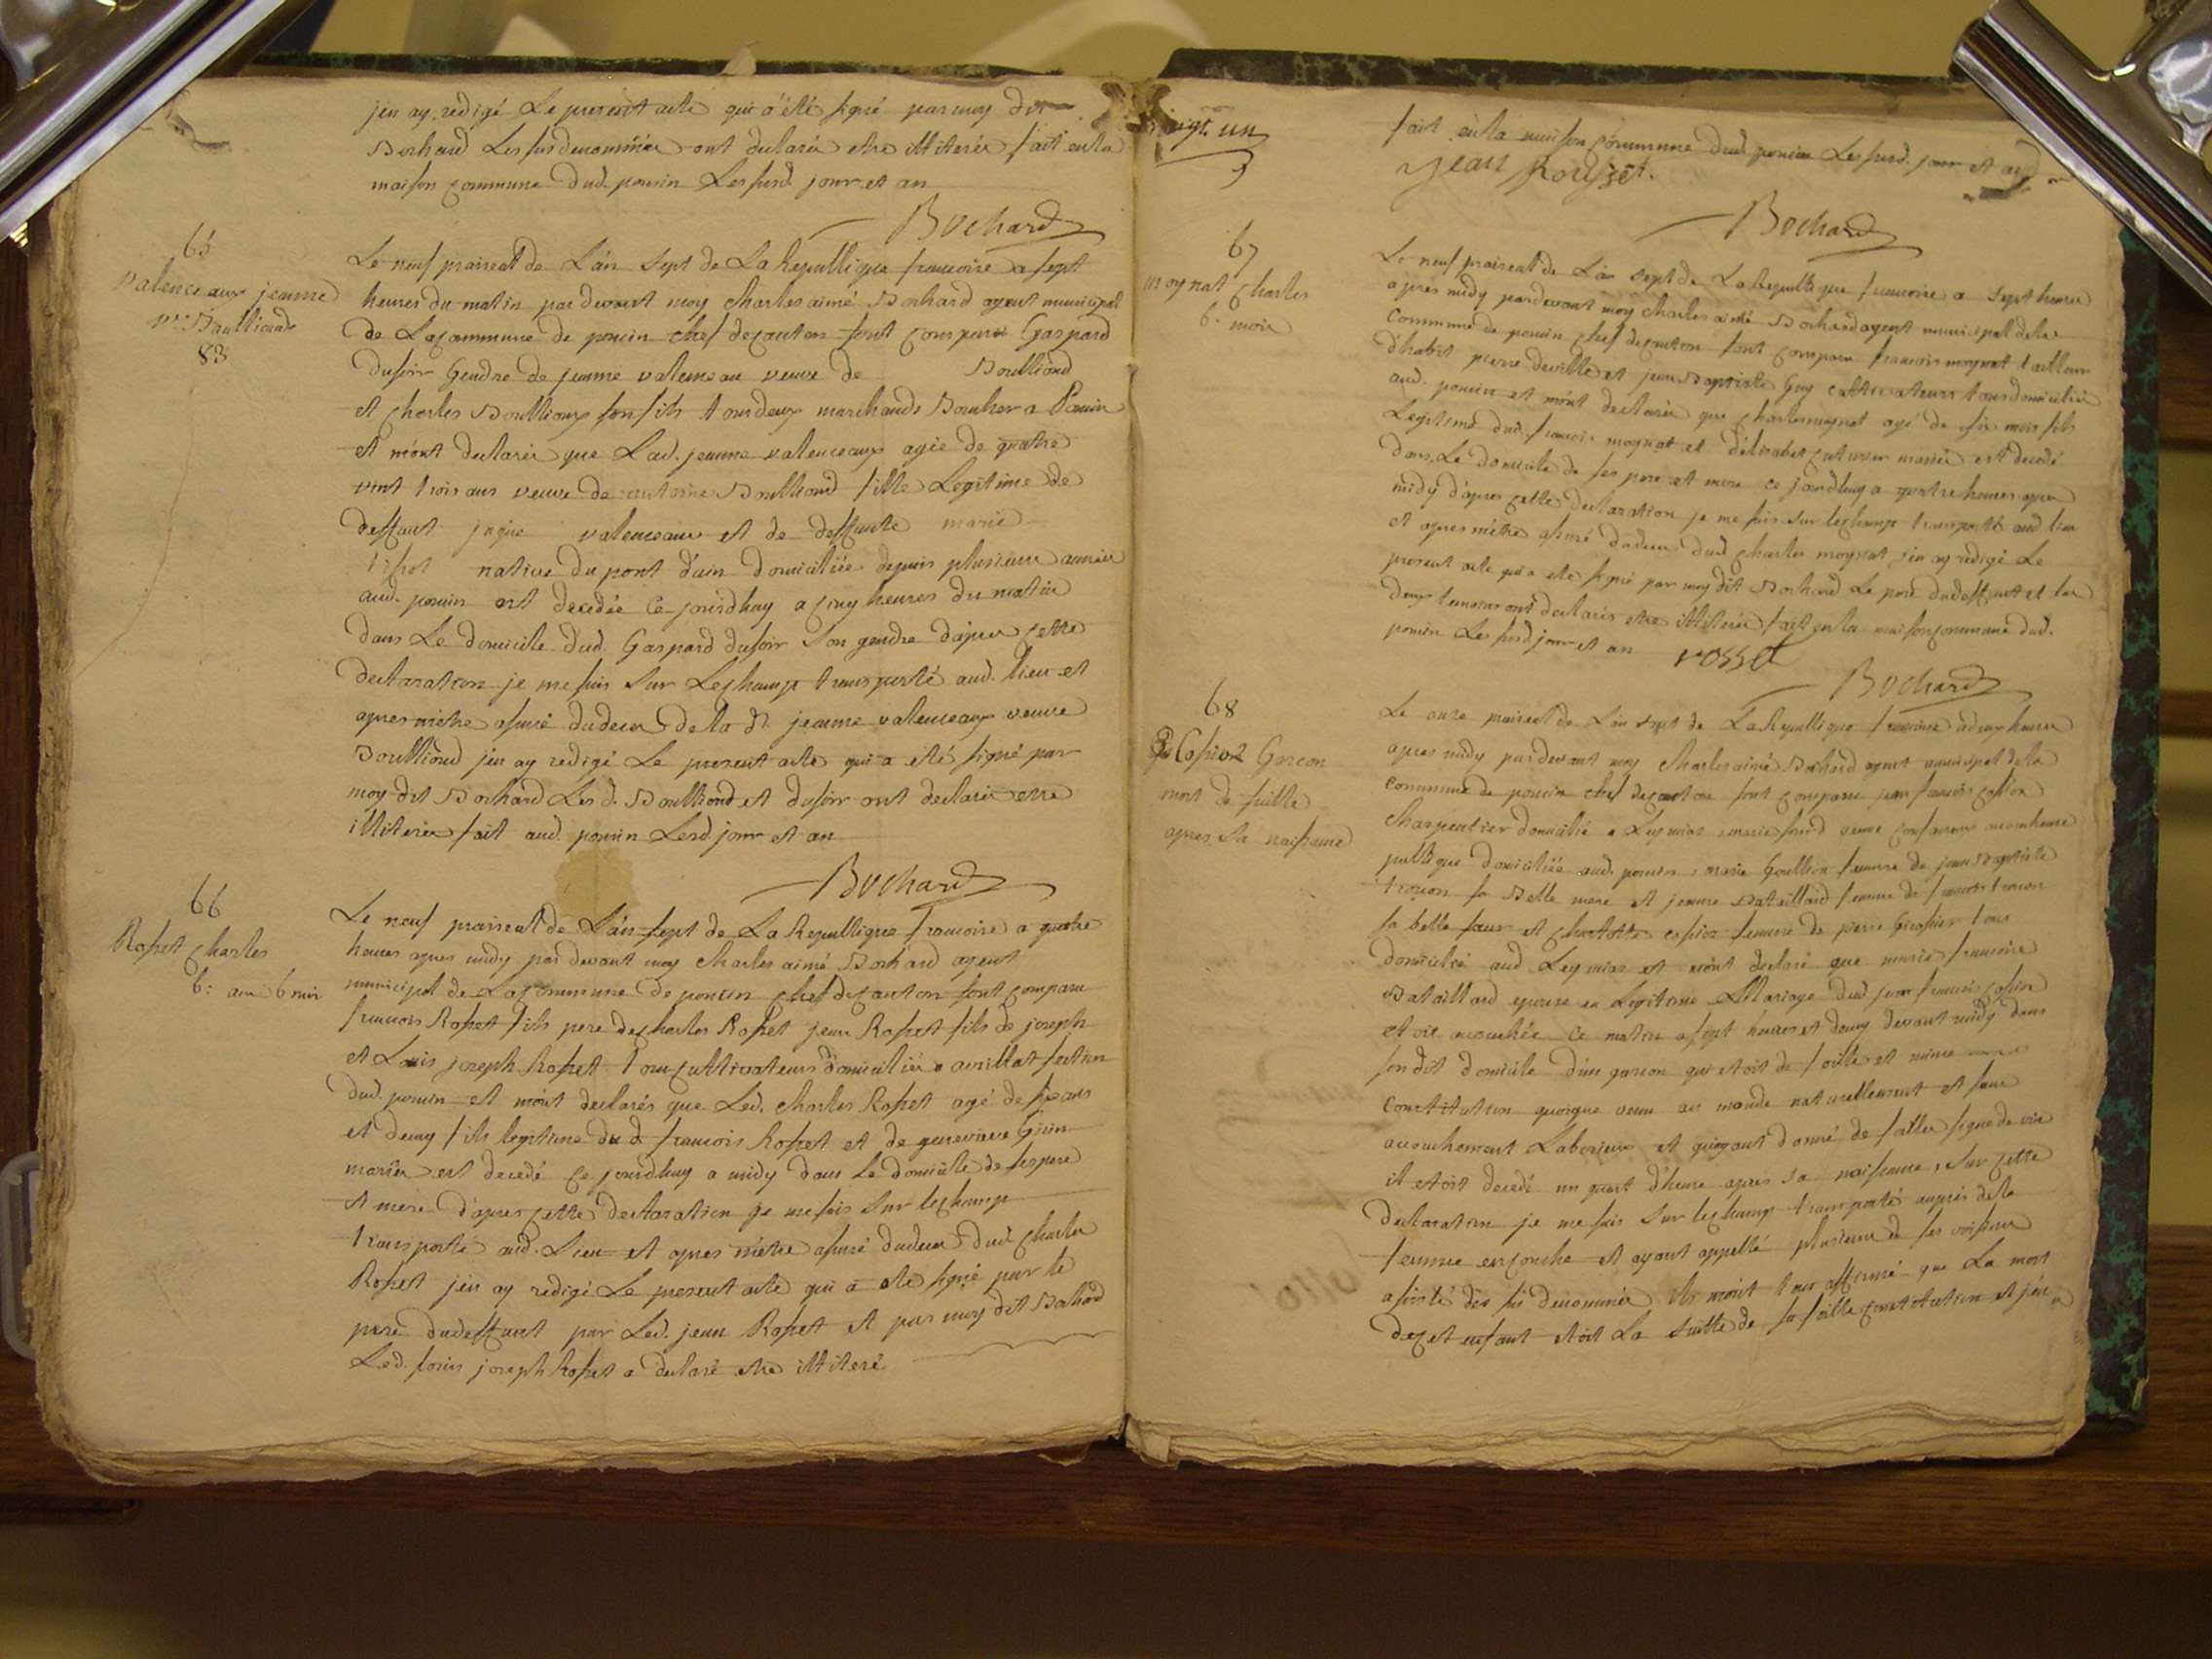 jen ay redigé Le present acte qui a été signé par moy dit
Bochard Les sus denommées ont declarés etre illiterés fait en la
maison commune dud. poncin Les susd. jour et an
Bochard
65
valenceaux jeanne
vve. Boulliond
83
Le neuf praireal de L'an sept de La Republique francoise a sept
heures du matin par devant moy charles aimé Bochard agent municipal
de La commune de poncin chef de canton sont comparu Gaspard
dusoir Gendre de jeanne valenceau veuve de Boulliond
et charles Boullioux son fils tous deux marchands Boucher a Poncin
et m'ont declarés que Lad. jeanne valenceaux agée de quatre
vint trois ans veuve de antoine Boulliond fille Legitime de
deffunt valenceau et de deffunte marie
native du pont d'ain domiciliée depuis plusieurs années
aud. poncin est decedée ce jourdhuy a cinq heures du matin
dans Le domicile dud. Gaspard dusoir son gendre d'apres cette
declaration je me suis sur Lechamp transporté aud. lieu et
apres m'etre assuré du deces de la de. jeanne valenceaux veuve
Boulliond jen ay redigé Le present acte qui a été signé par
moy dit Bochard Les d. Boulliond et dusoir ont declarés etre
illiterés fait aud. poncin Lesd. jour et an
Bochard
66
Rosset charles
6: ans 6 mois
Le neuf praireal de L'an sept de La Republique francoise a quatre
heures apres midy par devant moy charles aimé Bochard agent
municipal de La commune de poncin chef de canton sont comparu
francois Rosset fils pere de charles Rosset jean Rosset fils de joseph
et Louis joseph Rosset tous cultivateurs domiciliés a avrillat section
dud. poncin et m'ont declarés que Led. charles Rosset agé de six ans
et demy fils legitime du d. francois Rosset et de genevieve
mariés est decedé ce jourdhuy a midy dans Le domicile de ses pere
et mere d'apres cette declaration je me suis sur lechamp
transporté aud. Lieu et apres m'etre assuré du deces dud. charles
Rosset jen ay redigé Le present acte qui a ete signé par le
pere du deffunt par Led. jean Rosset et par moy dit Bochard
Led. Louis joseph Rosset a declaré etre illiteré
vigt un
fait en la maison commune dud. poncin Les susd. jour et an
jean Rousset.
Bochard
67
moynat charles
6. mois
Le neuf praireal de L'an sept de La Republique francoise a sept heures
apres midy pardevant moy charles aimé Bochard agent municipal de la
commune de poncin chef de canton sont comparu francois moynat tailleur
d'habit pierre deville et jean Baptiste Guy cultivateurs tous domiciliés
aud. poncin et m'ont declarés que charles moynat agé de six mois fils
Legitime dud. francois moynat et d'elisabet mariés est decedé
dans Le domicile de ses pere et mere ce jourdhuy a quatre heures apres
midy d'apres cette declaration je me suis sur lechamp transporté aud lieu
et apres m'etre assuré du deces dud charles moynat j'en ay redigé Le
present acte qui a ete signé par moy dit Bochard Le pere du deffunt et les
deux temoins ont declarés etre illiterés fait en la maison commune dud.
poncin Les susd jour et an
rosset
Bochard
68
Cossion Garcon
mort de suitte
apres sa naissance
Le onze praireal de L'an sept de La Republique francoise a deux heures
apres midy par devant moy charles aimé Bochard agent municipal de la
commune de poncin chef de canton sont comparu jean francois cossion
charpentier domicilié a Leymiaz marie veuve accoucheuse
publique domiciliée aud. poncin, marie Goullion femme de jean Baptiste
sa Belle mere et jeanne Bataillard femme de francois
sa belle soeur et charlotte cossion femme de pierre tous
domiciliés aud Leymiaz et m'ont declaré que marie francoise
Bataillard epouse en Legitime Mariage dud. jean francois cossion
etoit accouchée ce matin a sept heures et demy devant midy dans
son dit domicile d'un garcon qui etoit de foible et mince
constitution quoique venu au monde naturellement et sans
accouchement Laborieux et quayant donné de foibles signe de vie
il etoit decedé un quart d'heure apres sa naissance, sur cette
declaration je me suis sur lechamp transporté aupres de la
femme en couche et ayant appellé plusieurs de ses voisines
assisté des sus denommées ils m'ont tous affirmé que La mort
de cet enfant etoit La suitte de sa foible constitution et j'en